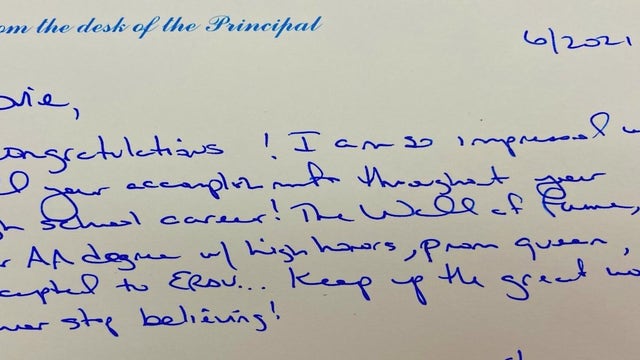 om the desk of the Principal
6/2021
ovie,
ongratulations ! I am so impressed w
l your accomplishments throughout your
gh school career! The Wall of Fame,
r AA degree w/ high honors, prom queen,
cepted to ERAU... Keep up the great wo
ver stop believing!